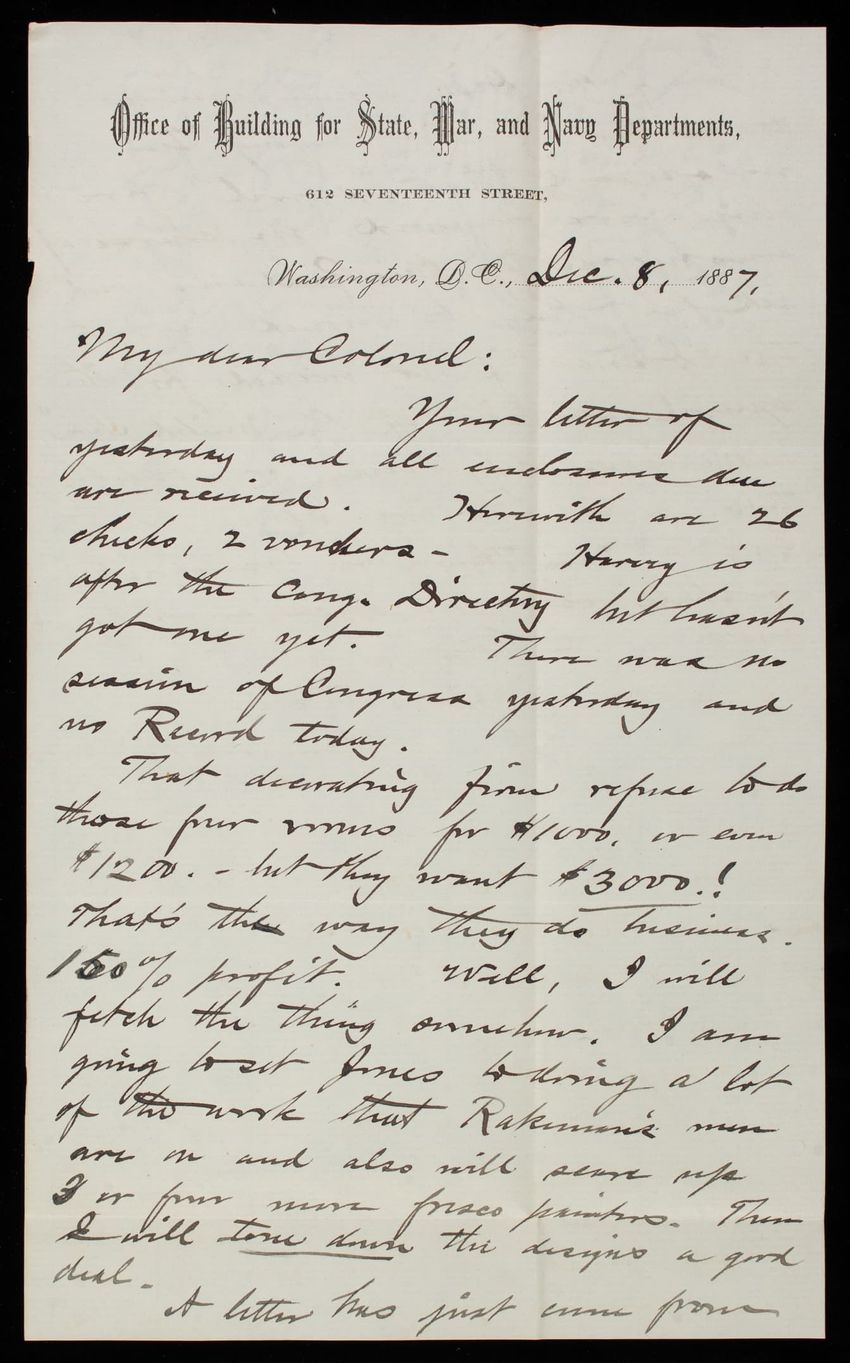 Office of Building for State, War, and Navy Departments,
612 SEVENTEENTH STREET,
Washington, D.C., Dec. 8, 1887.
My dear Colonel:
Your letter of
yesterday and all enclosures due
are received. Herewith are 26
checks, 2 vouchers - Harvey is
after the Cong. Directory but hasn't
got one yet. There was no
session of Congress yesterday and
no Record today.
That decorating firm refuse to do
those four rooms for $1000. or even
$1200. - but they want $3000.!
That's the way they do business.
150% profit. Well, I will
fetch the thing somehow. I am
going to set Jones to doing a lot
of the work that Rakeman's men
are on and also will scare up
3 or four more fresco painters. Then
I will tone down the designs a good
deal.
A letter has just come from